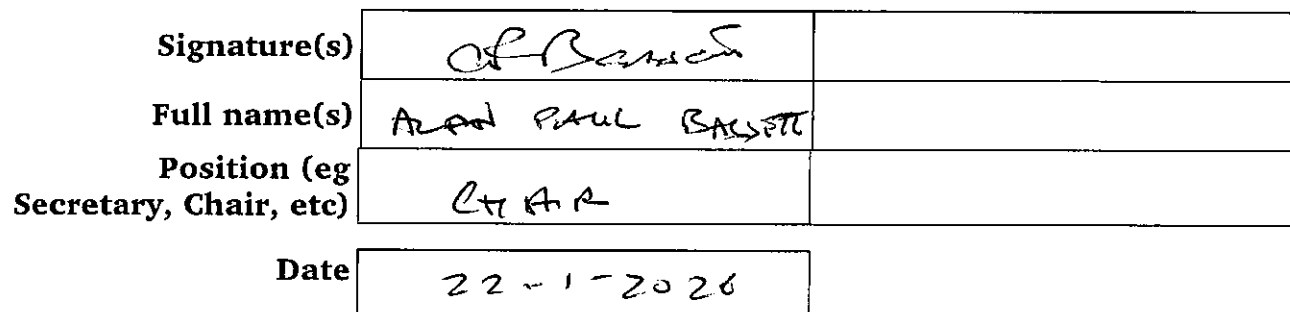 Signature(s)
Full name(s) ALAN PAUL BASSETT
Position (eg
Secretary, Chair, etc) CHAIR
Date 22-1-2026